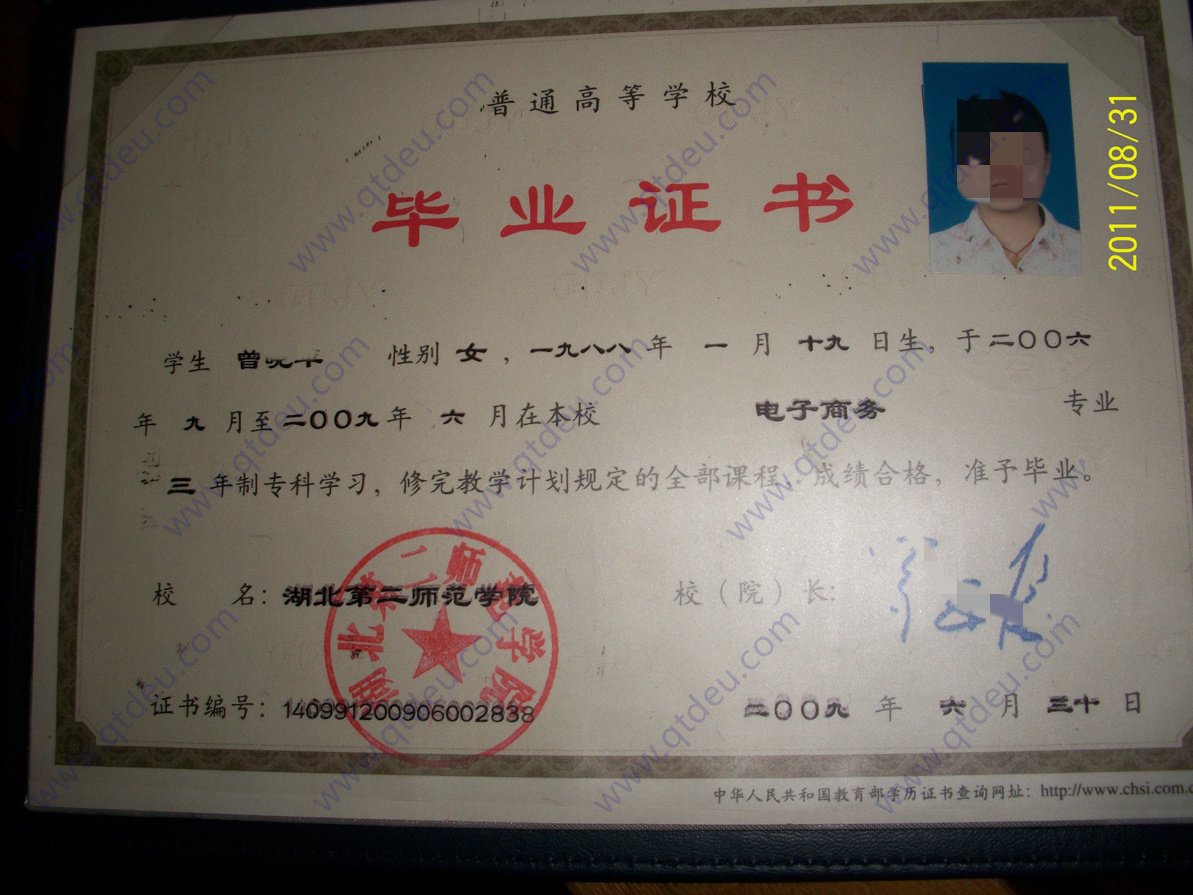 普通高等学校
毕业证书
2011/08/31
学生 曾 性别 女，一九八八年 一 月 十九 日生，于二〇〇六
年 九 月至二〇〇九年 六 月在本校 电子商务 专业
三 年制专科学习，修完教学计划规定的全部课程，成绩合格，准予毕业。
校 名：湖北第二师范学院 校（院）长：
湖北第二师范学院
证书编号：140991200906002838 二〇〇九 年 六 月 三十 日
中华人民共和国教育部学历证书查询网址：http://www.chsi.com.c
www.qtdeu.com